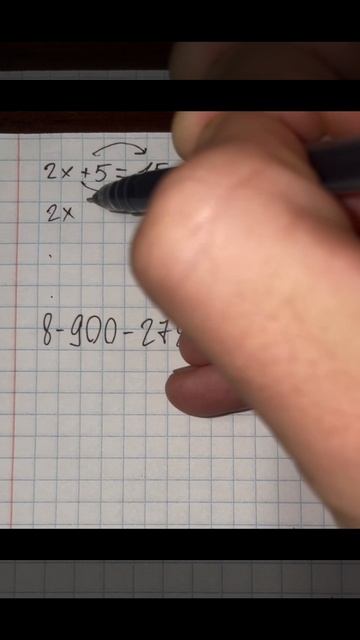 2x + 5 = 15
2x
.
.
8-900-27